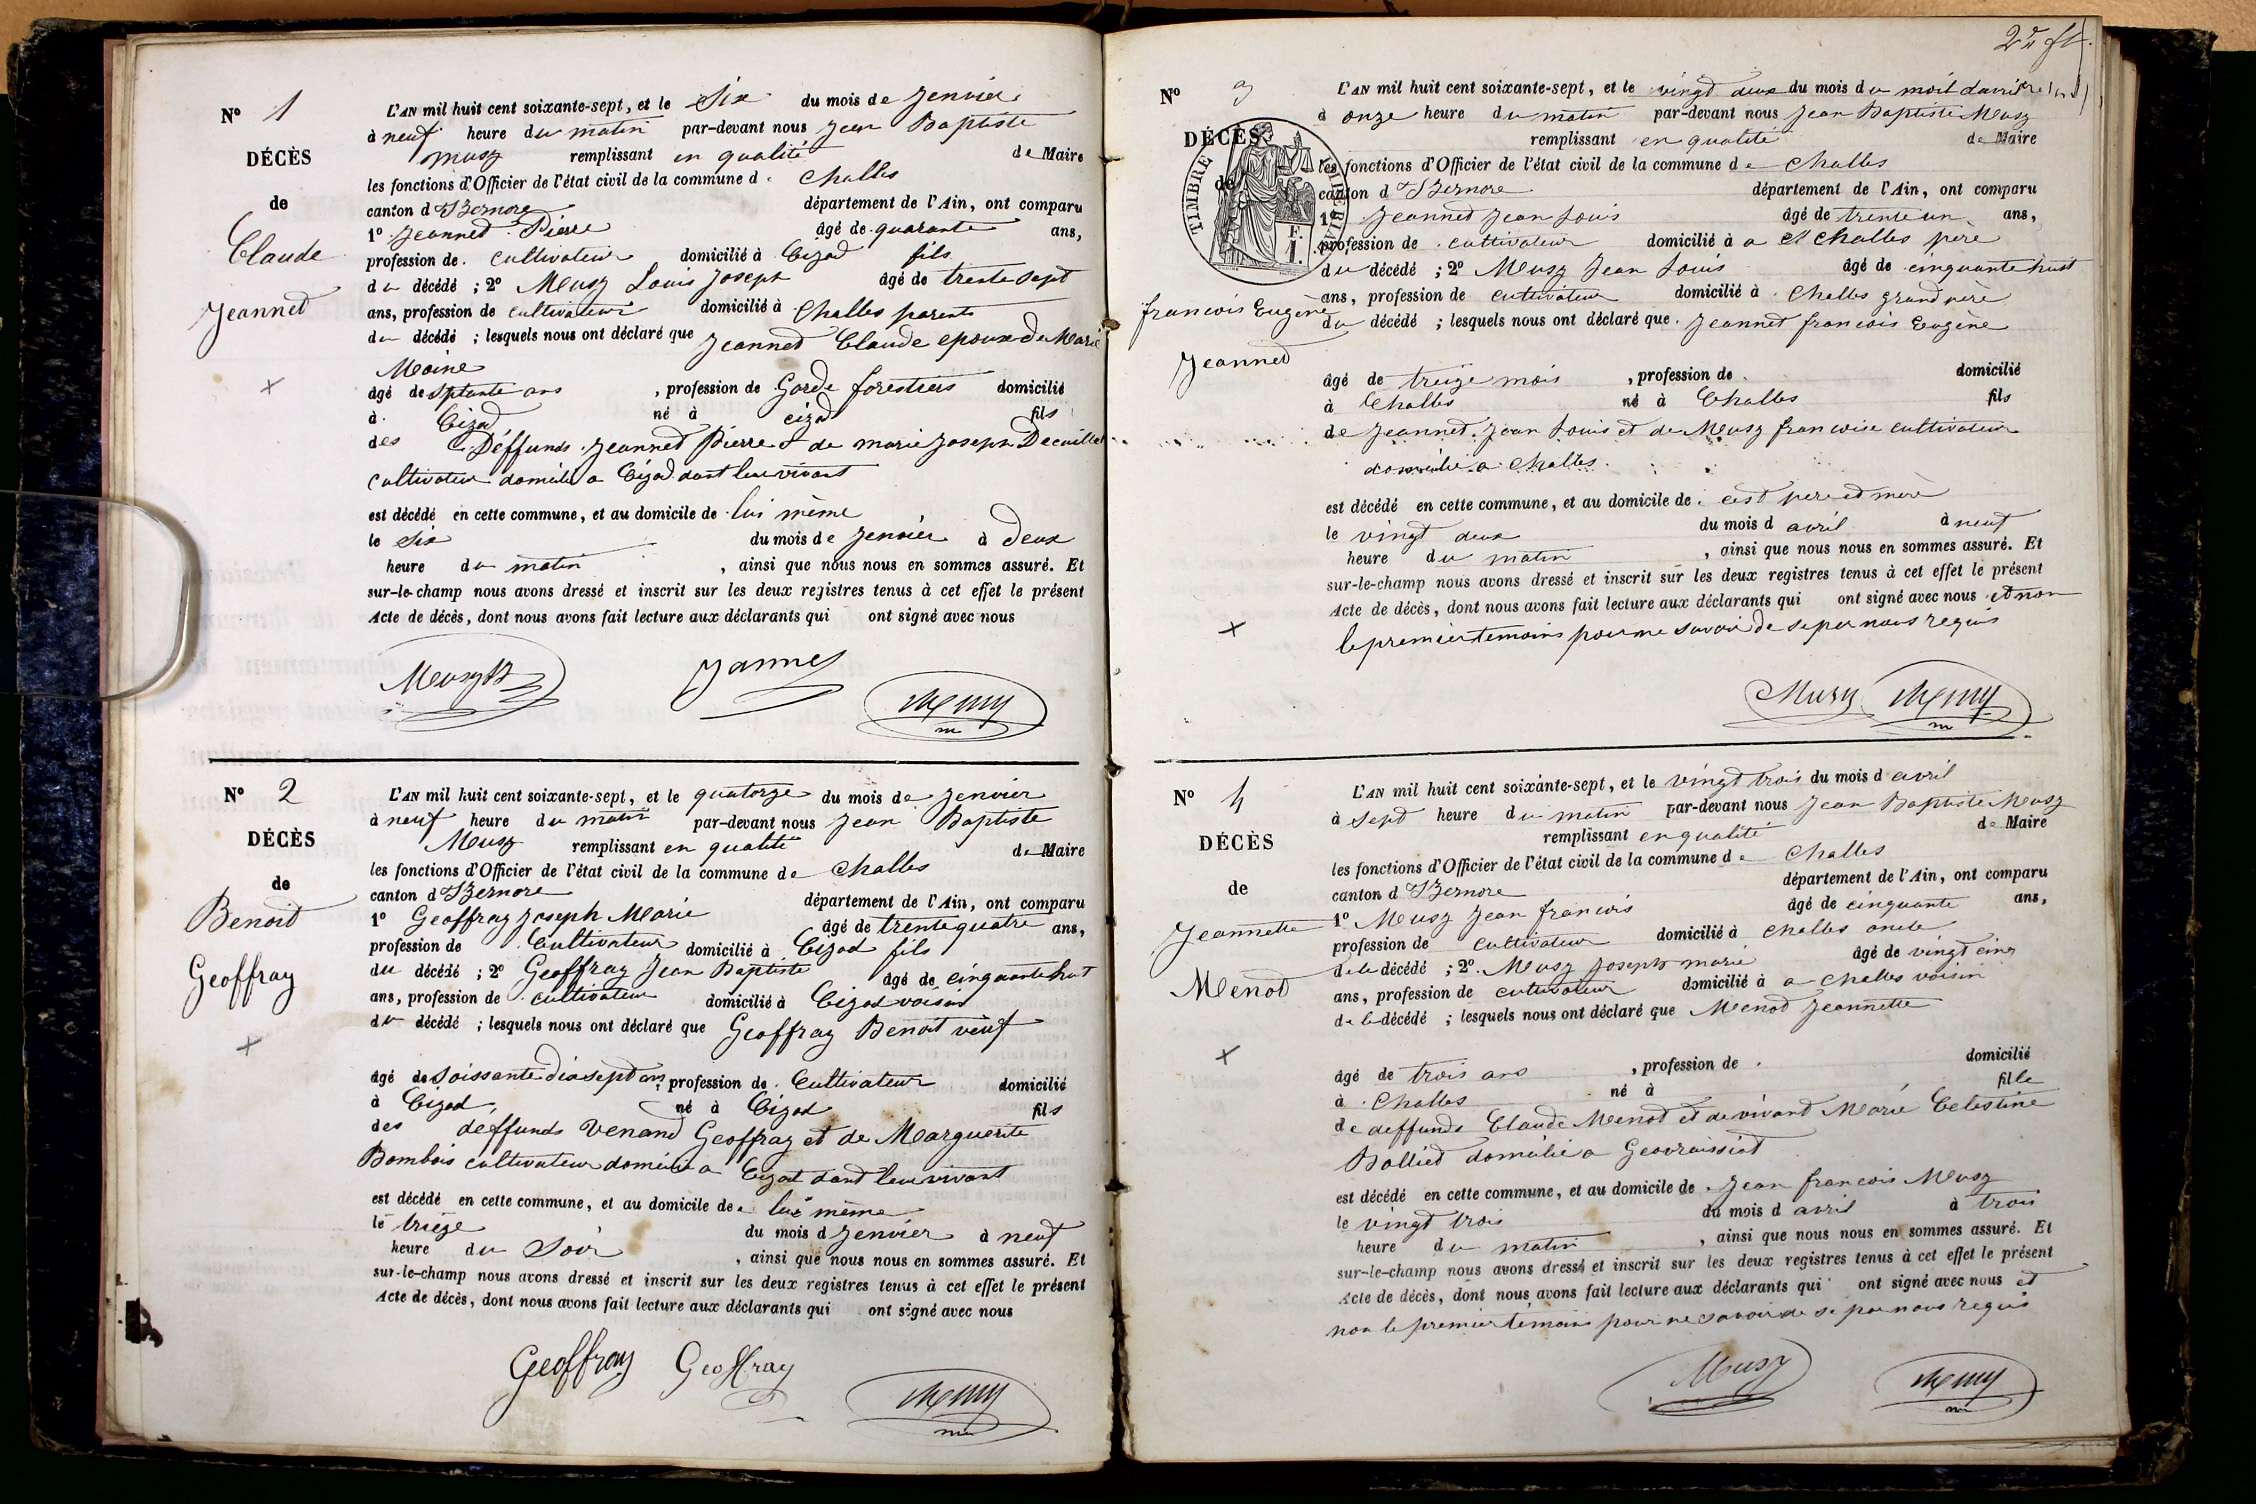 Nº 1
DÉCÈS
de
Claude
Jeannet
L'AN mil huit cent soixante-sept, et le Six du mois de Jenvier
à neuf heure du matin par-devant nous Jean Baptiste
Musy remplissant en qualité de Maire
les fonctions d'Officier de l'état civil de la commune d. Challes
canton d'Izernore département de l'Ain, ont comparu
1º Jeannet Pierre âgé de quarante ans,
profession de cultivateur domicilié à Cizod fils
du décédé ; 2º Musy Louis Joseph âgé de trente sept
ans, profession de cultivateur domicilié à Challes parents
du décédé ; lesquels nous ont déclaré que Jeannet Claude epoux de Marie
Moine
âgé de septante ans , profession de Garde forestiers domicilié
à Cizod né à cizod fils
des Déffunds Jeannet Pierre & de marie Joseph
cultivateur domicilié a Cizod dont leur vivant
est décédé en cette commune, et au domicile de lui même
le Six du mois de Jenvier à deux
heure du matin , ainsi que nous nous en sommes assuré. Et
sur-le-champ nous avons dressé et inscrit sur les deux registres tenus à cet effet le présent
Acte de décès, dont nous avons fait lecture aux déclarants qui ont signé avec nous
Nº 2
DÉCÈS
de
Benoit
Geoffray
L'AN mil huit cent soixante-sept, et le quatorze du mois de Jenvier
à neuf heure du matin par-devant nous Jean Baptiste
Musy remplissant en qualité de Maire
les fonctions d'Officier de l'état civil de la commune de Challes
canton d'Izernore département de l'Ain, ont comparu
1º Geoffray Joseph Marie âgé de trente quatre ans,
profession de Cultivateur domicilié à Cizod fils
du décédé ; 2º Geoffray Jean Baptiste âgé de cinquante huit
ans, profession de cultivateur domicilié à Cizod voisin
du décédé ; lesquels nous ont déclaré que Geoffray Benoit veuf
âgé de soissante dix sept ans, profession de Cultivateur domicilié
à Cizod né à Cizod fils
des déffunds Venand Geoffray et de Marguerite
Bombois cultivateur domicilié a Cizod dant leur vivant
est décédé en cette commune, et au domicile de lui même
le triége du mois d Jenvier à neuf
heure du Soir , ainsi que nous nous en sommes assuré. Et
sur-le-champ nous avons dressé et inscrit sur les deux registres tenus à cet effet le présent
Acte de décès, dont nous avons fait lecture aux déclarants qui ont signé avec nous
Geoffray Geoffray
Nº 3
DÉCÈS
de
TIMBRE
francois Eugène
Jeannet
L'AN mil huit cent soixante-sept, et le vingt deux du mois du moit d'avril
à onze heure du matin par-devant nous Jean Baptiste Musy
remplissant en qualité de Maire
les fonctions d'Officier de l'état civil de la commune de Challes
canton d'Izernore département de l'Ain, ont comparu
1º Jeannet Jean Louis âgé de trente un ans,
profession de cultivateur domicilié à a Challes père
du décédé ; 2º Musy Jean Louis âgé de cinquante huit
ans, profession de cultivateur domicilié à Challes grand père
du décédé ; lesquels nous ont déclaré que Jeannet francois Eugène
âgé de treize mois , profession de domicilié
à Challes né à Challes fils
de Jeannet Jean Louis et de Musy francoise cultivateur
domicilié a Challes
est décédé en cette commune, et au domicile de cest pere et mère
le vingt deux du mois d avril à neuf
heure du matin , ainsi que nous nous en sommes assuré. Et
sur-le-champ nous avons dressé et inscrit sur les deux registres tenus à cet effet le présent
Acte de décès, dont nous avons fait lecture aux déclarants qui ont signé avec nous et non
le premier temoins pour ne savoir de se par nous requis
Musy
Nº 4
DÉCÈS
de
Jeannette
Menod
L'AN mil huit cent soixante-sept, et le vingt trois du mois d avril
à sept heure du matin par-devant nous Jean Baptiste Musy
remplissant en qualité de Maire
les fonctions d'Officier de l'état civil de la commune de Challes
canton d'Izernore département de l'Ain, ont comparu
1º Musy Jean francois âgé de cinquante ans,
profession de cultivateur domicilié à Challes oncle
de la décédé ; 2º Musy Joseph marie âgé de vingt cinq
ans, profession de cultivateur domicilié à a Challes voisin
de la décédé ; lesquels nous ont déclaré que Menod Jeannette
âgé de trois ans , profession de domicilié
à Challes né à fille
de deffunds Claude Menod et de vivand Marie Celestine
Bollied domicilié a Geovraissiat
est décédé en cette commune, et au domicile de Jean francois Musy
le vingt trois du mois d avril à trois
heure du matin , ainsi que nous nous en sommes assuré. Et
sur-le-champ nous avons dressé et inscrit sur les deux registres tenus à cet effet le présent
Acte de décès, dont nous avons fait lecture aux déclarants qui ont signé avec nous et
non le premier témoins pour ne savoir de se par nous requis
Musy